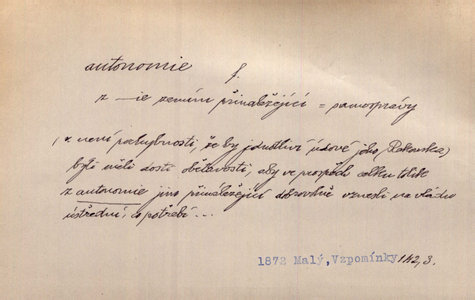 autonomie f.
z —ie zemím přináležející = samosprávy
(z není pochybnosti, že by jednotliví údové jeho (Rakouska)
byli měli dosti obětavosti, aby ve prospěch celku tolik
z autonomie jim přináležející dobrovolně vznesli na vládu
ústřední, co potřebí ...
1872 Malý, Vzpomínky 142,3.